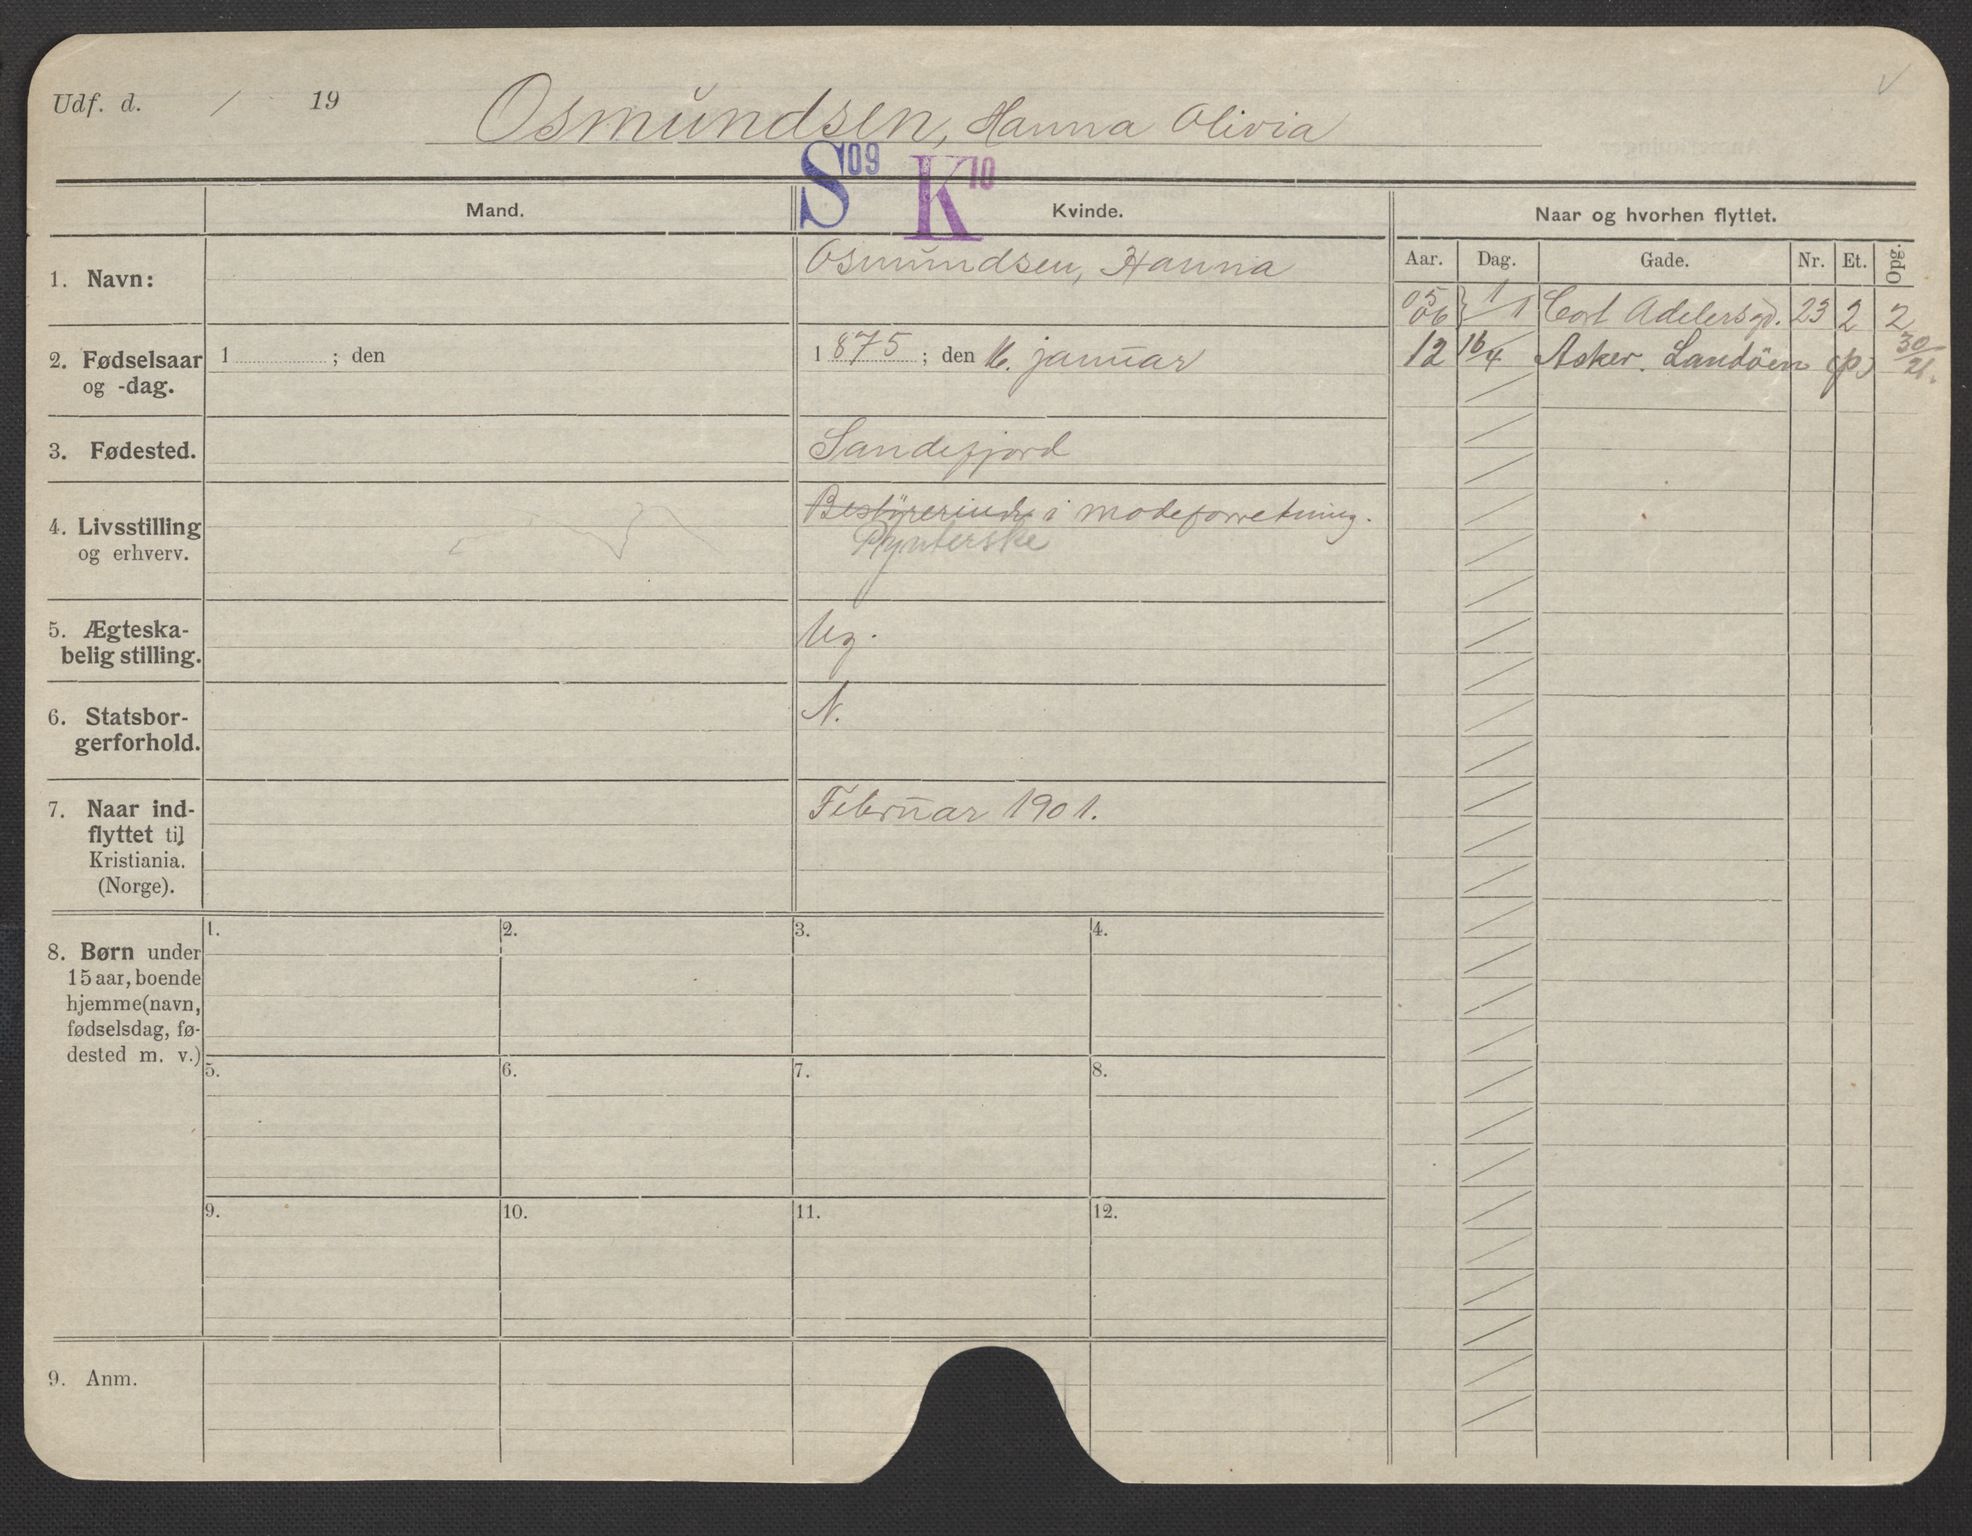 Udf. d. / 19 Osmundsen, Hanna Olivia
S09 K10
Mand. Kvinde. Naar og hvorhen flyttet.
Aar. Dag. Gade. Nr. Et. Opg.
1. Navn: Osmundsen, Hanna
05 06 } 1/1 Cort Adelersgd. 23 2 2
12 16/4 Asker. Landöen (p) 30/21.
2. Fødselsaar og -dag. 1 ; den 1 875 ; den 16. januar
3. Fødested. Sandefjord
4. Livsstilling og erhverv. Bestyrerinde i modeforretning.
Pynterske
5. Ægteska-
belig stilling. Ug.
6. Statsbor-
gerforhold. N.
7. Naar ind-
flyttet til
Kristiania.
(Norge). Februar 1901.
8. Børn under
15 aar, boende
hjemme (navn,
fødselsdag, fø-
dested m. v.)
1. 2. 3. 4.
5. 6. 7. 8.
9. 10. 11. 12.
9. Anm.